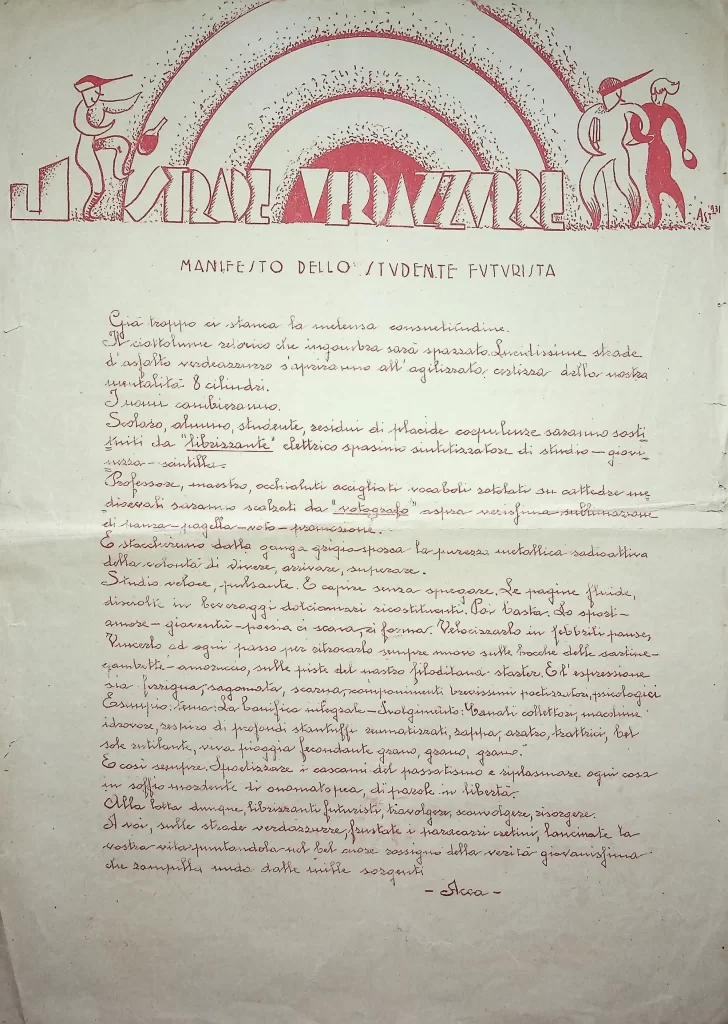 STRADE VERDAZZURRE
AST 931
MANIFESTO DELLO STUDENTE FUTURISTA
Già troppo ci stanca la melensa consuetudine.
Il ciottolume retorico che ingombra sarà spazzato. Lucidissime strade
d'asfalto verdeazzurro s'apriranno all'agilizzata, certezza della nostra
mentalità 8 cilindri.
I nomi cambieranno.
Scolaro, alunno, studente, residui di placide corpulenze saranno sosti
tuiti da "librizzante" elettrico spasimo sintetizzatore di studio - giovi
nezza - scintilla.
Professore, maestro, occhialuti accigliati vocaboli rotolati su cattedre me
dioevali saranno scalzati da "votografo" aspra verissima sublimazione
di panza - pagella - voto - promozione.
E staccheremo dalla ganga grigiosporca la purezza metallica radioattiva
della volontà di vivere, arrivare, superare.
Studio veloce, pulsante. E capire senza spiegare. Le pagine fluide,
disciolte in beveraggi dolciamari ricostituenti. Poi basta. Lo sport -
amore - gioventù - poesia ci scava, ci forma. Velocizzarlo in febbrili pause,
Vincerlo ad ogni passo per ritrovarlo sempre nuovo sulle bocche delle sartine -
gambette - amoruccio, sulle piste del nostro starter. E l'espressione
sia ferrigna, sagomata, scarna, componimenti brevissimi poetizzatori, psicologici
Esempio: tema: La bonifica integrale - Svolgimento: "Canali collettori, macchine
idrovore, respiro di profondi stantuffi reumatizzati, zappa, aratro, trattrici, bel
sole rutilante, viva pioggia fecondante grano, grano, grano."
E così sempre. Spoetizzare i cascami del passatismo e riplasmare ogni cosa
in soffio mordente di onomatopea, di parole in libertà.
Alla lotta dunque, librizzanti futuristi, travolgere, sconvolgere, risorgere.
A voi, sulle strade verdazzurre, frustate i paracarri cretini, lanciate la
vostra vita puntandola nel bel cuore rossigno della verità giovanissima
che zampilla nuda dalle mille sorgenti
- Acca -